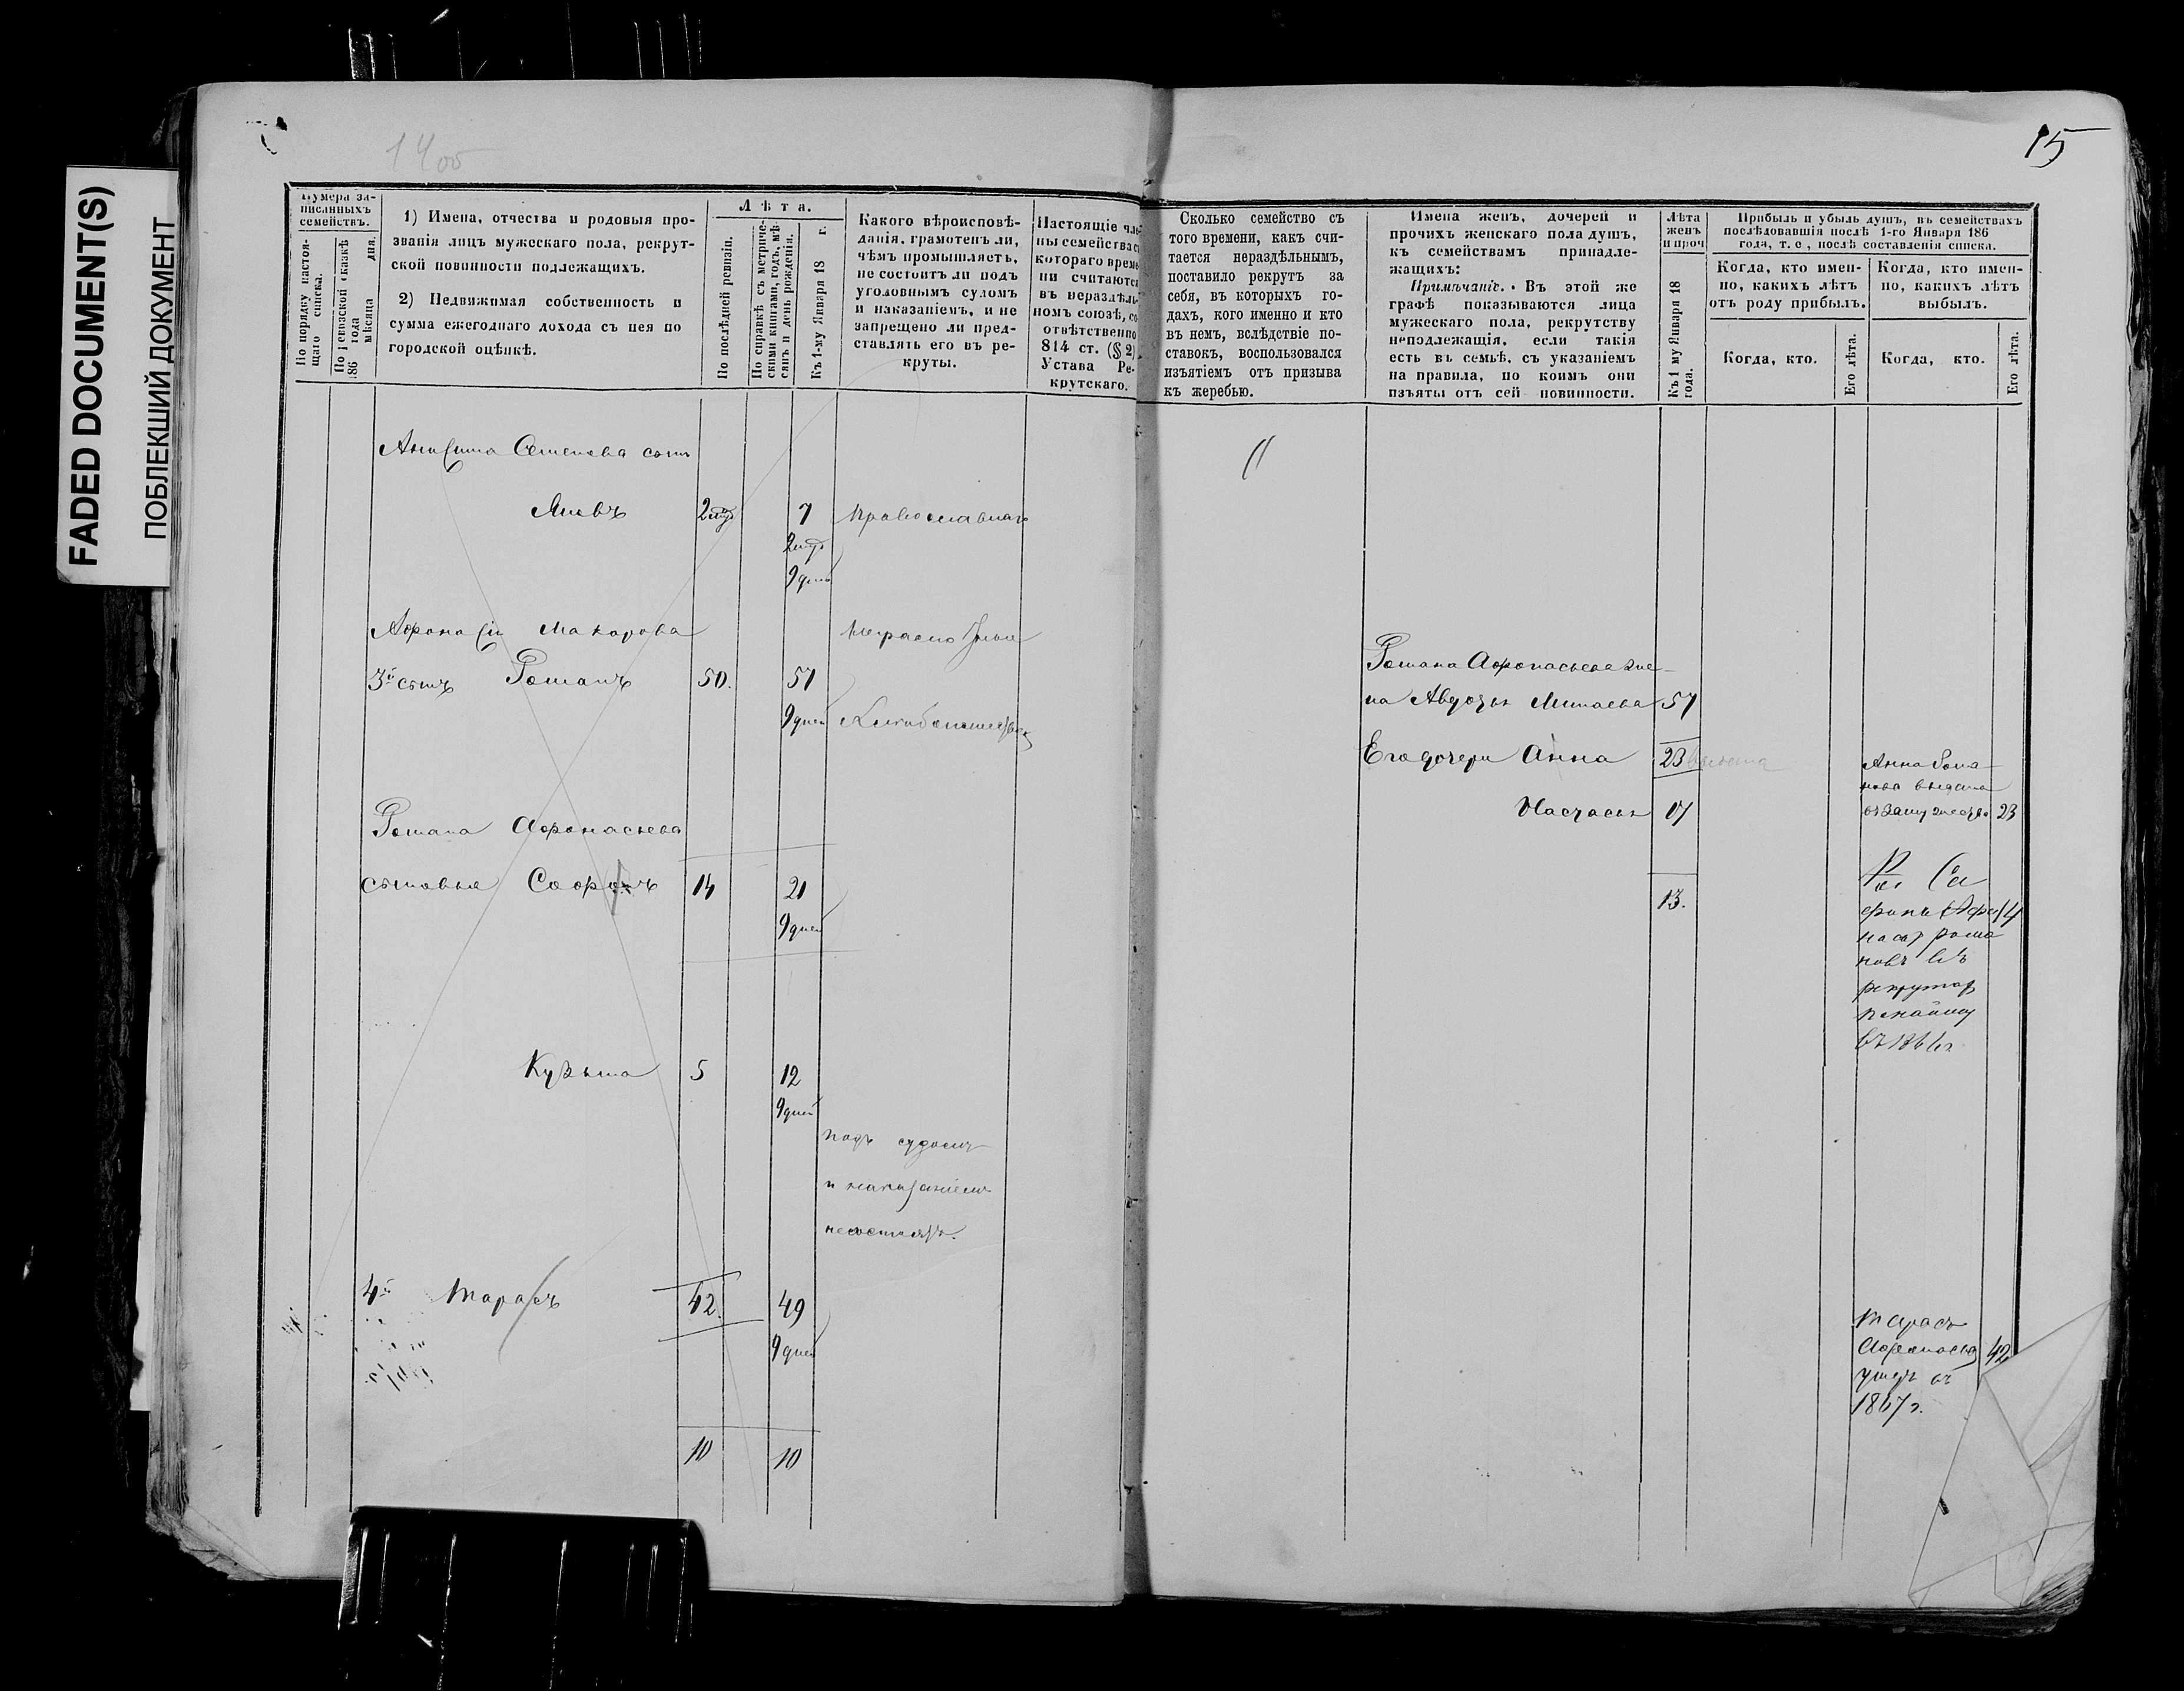 FADED DOCUMENT(S)
ПОБЛЕКШИЙ ДОКУМЕНТ
15
Нумера за-
писанныхъ
семействъ.
По порядку настоя-
щаго списка.
По ревизской сказкѣ
186 года
мѣсяца дня.
1) Имена, отчества и родовыя про-
званія лицъ мужескаго пола, рекрут-
ской повинности подлежащихъ.
2) Недвижимая собственность и
сумма ежегоднаго дохода съ нея по
городской оцѣнкѣ.
Лѣта.
По послѣдней ревизіи.
По справкѣ съ метриче-
скими книгами, годъ, мѣ-
сяцъ и день рожденія.
Къ 1-му Января 18 г.
Какого вѣроисповѣ-
данія, грамотенъ ли,
чѣмъ промышляетъ,
не состоитъ ли подъ
уголовнымъ судомъ
и наказаніемъ, и не
запрещено ли пред-
ставлять его въ ре-
круты.
Настоящіе чле-
ны семейства съ
котораго време-
ни считаются
въ нераздѣль-
номъ союзѣ, со-
отвѣтственно
814 ст. (§ 2)
Устава Ре-
крутскаго.
Сколько семейство съ
того времени, какъ счи-
тается нераздѣльнымъ,
поставило рекрутъ за
себя, въ которыхъ го-
дахъ, кого именно и кто
въ немъ, вслѣдствіе по-
ставокъ, воспользовался
изъятіемъ отъ призыва
къ жеребью.
Имена женъ, дочерей и
прочихъ женскаго пола душъ,
къ семействамъ принадле-
жащихъ:
Примѣчаніе. Въ этой же
графѣ показываются лица
мужескаго пола, рекрутству
неподлежащія, если такія
есть въ семьѣ, съ указаніемъ
на правила, по коимъ они
изъяты отъ сей повинности.
Лѣта
женъ
и проч
Къ 1 му Января 18
года.
Прибыль и убыль душъ, въ семействахъ
послѣдовавшія послѣ 1-го Января 186
года, т. е, послѣ составленія списка.
Когда, кто имен-
но, какихъ лѣтъ
отъ роду прибылъ.
Когда, кто имен-
но, какихъ лѣтъ
выбылъ.
Когда, кто.
Его лѣта.
Когда, кто.
Его лѣта.
Семенова сынъ
7 православнаго
9 дней
Афонасій Макарова
3й сынъ Романъ 50. 57
9 дней
Романа Афонасьева же-
на Авдотья Минаева 57
Его дочери Анна 23
Настасья 17
Анна Рома-
нова выдана
въ замужество 23
Романа Афонасьева
сыновья Софронъ 14 21
9 дней
13.
14
въ
Кузьма 5 12
9 дней
подъ судомъ
и наказаніемъ
несостоятъ.
4й Тарасъ 42. 49
9 дней
Тарасъ
Афонасьевъ 42
въ
1867 г.
10 10